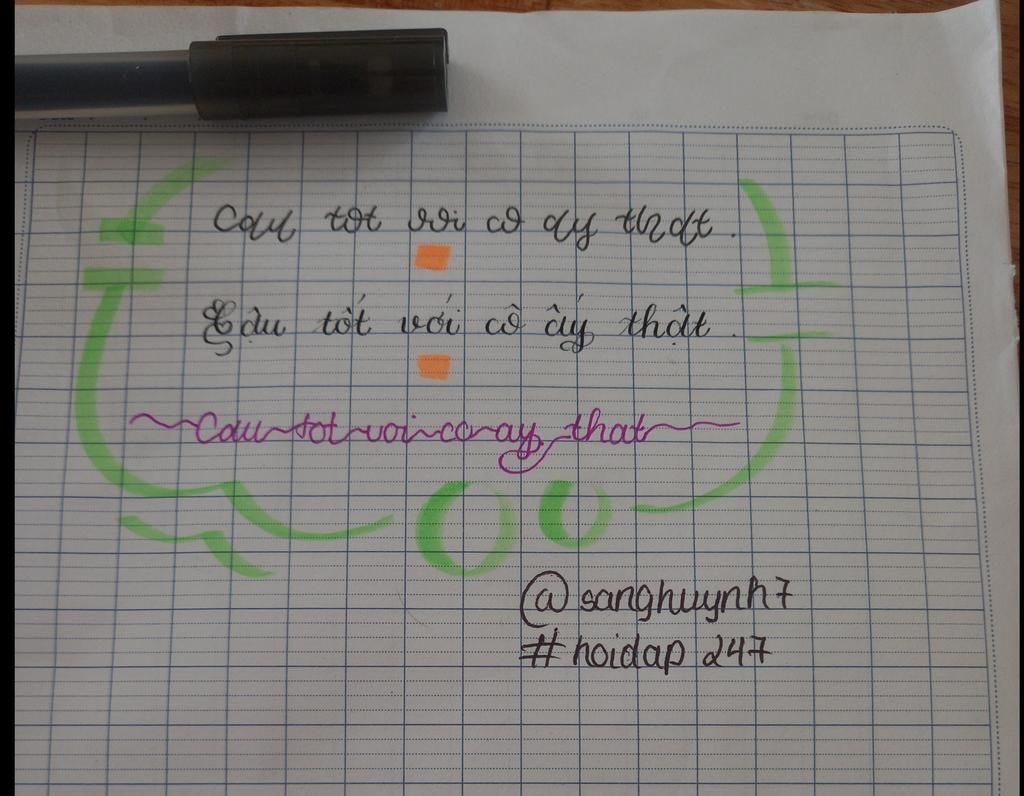 Cau tot voi co ay that.
Cậu tốt với cô ấy thật.
Cau tot voi co ay that
@sanghuynh7
#hoidap 247